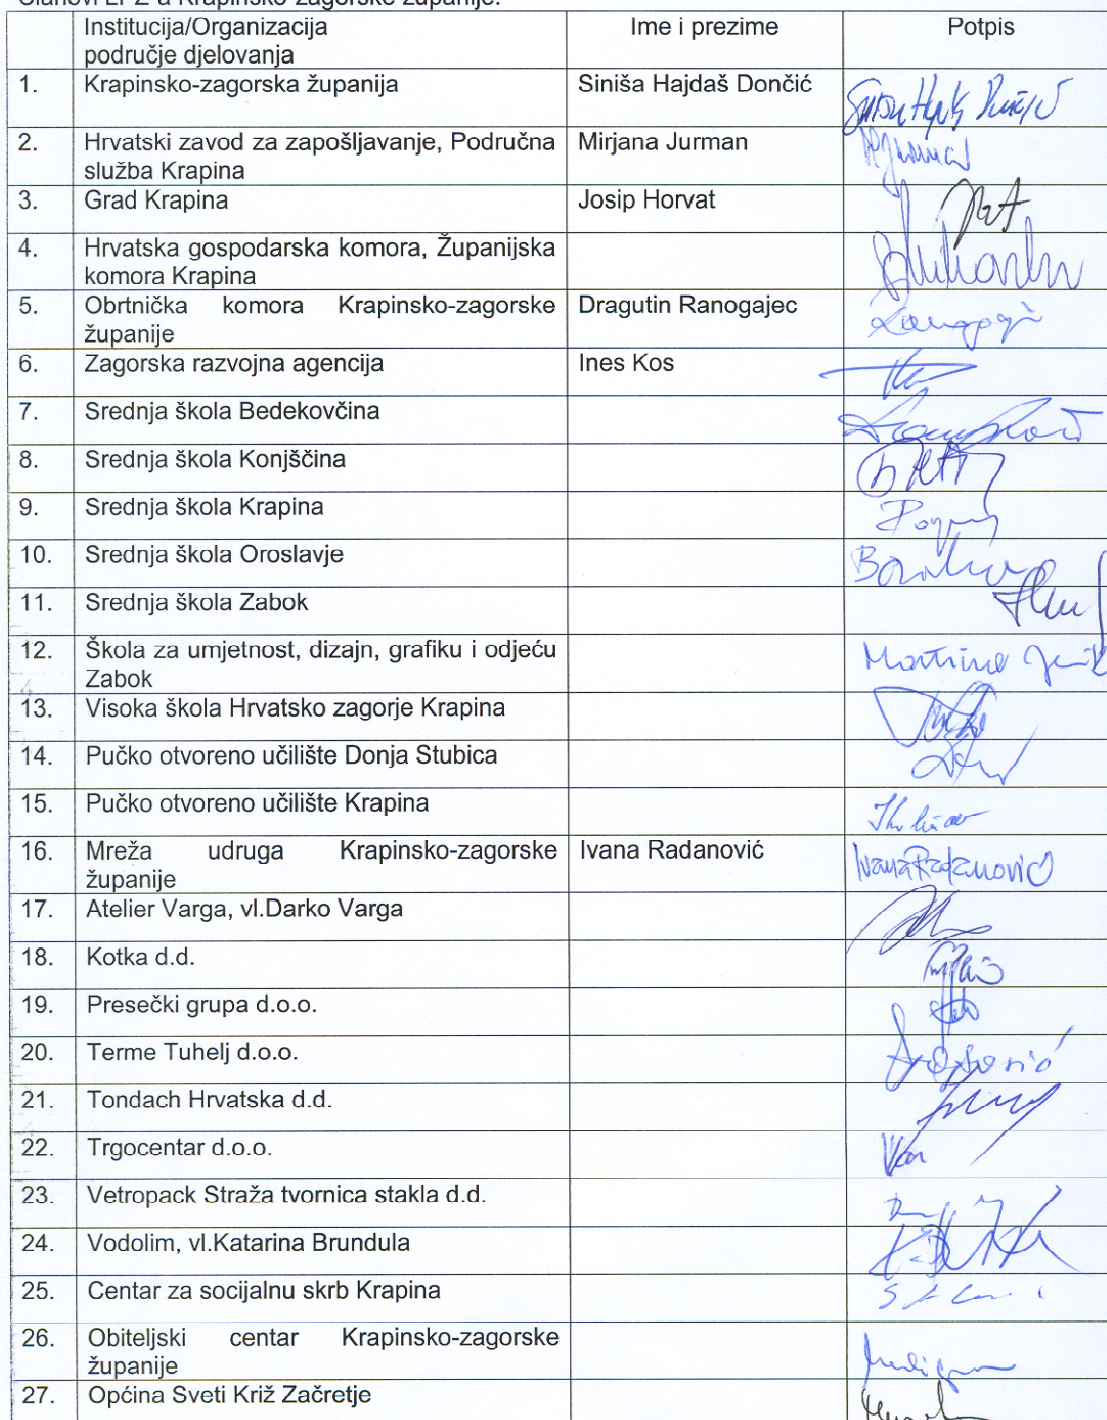 Članovi LPZ-a Krapinsko-zagorske županije:
Institucija/Organizacija
područje djelovanja
Ime i prezime
Potpis
1. Krapinsko-zagorska županija Siniša Hajdaš Dončić
2. Hrvatski zavod za zapošljavanje, Područna Mirjana Jurman
služba Krapina
3. Grad Krapina Josip Horvat
4. Hrvatska gospodarska komora, Županijska
komora Krapina
5. Obrtnička komora Krapinsko-zagorske Dragutin Ranogajec
županije
6. Zagorska razvojna agencija Ines Kos
7. Srednja škola Bedekovčina
8. Srednja škola Konjščina
9. Srednja škola Krapina
10. Srednja škola Oroslavje
11. Srednja škola Zabok
12. Škola za umjetnost, dizajn, grafiku i odjeću Martina
Zabok
13. Visoka škola Hrvatsko zagorje Krapina
14. Pučko otvoreno učilište Donja Stubica
15. Pučko otvoreno učilište Krapina
16. Mreža udruga Krapinsko-zagorske Ivana Radanović Ivana Radanović
županije
17. Atelier Varga, vl.Darko Varga
18. Kotka d.d.
19. Presečki grupa d.o.o.
20. Terme Tuhelj d.o.o.
21. Tondach Hrvatska d.d.
22. Trgocentar d.o.o.
23. Vetropack Straža tvornica stakla d.d.
24. Vodolim, vl.Katarina Brundula
25. Centar za socijalnu skrb Krapina
26. Obiteljski centar Krapinsko-zagorske
županije
27. Općina Sveti Križ Začretje